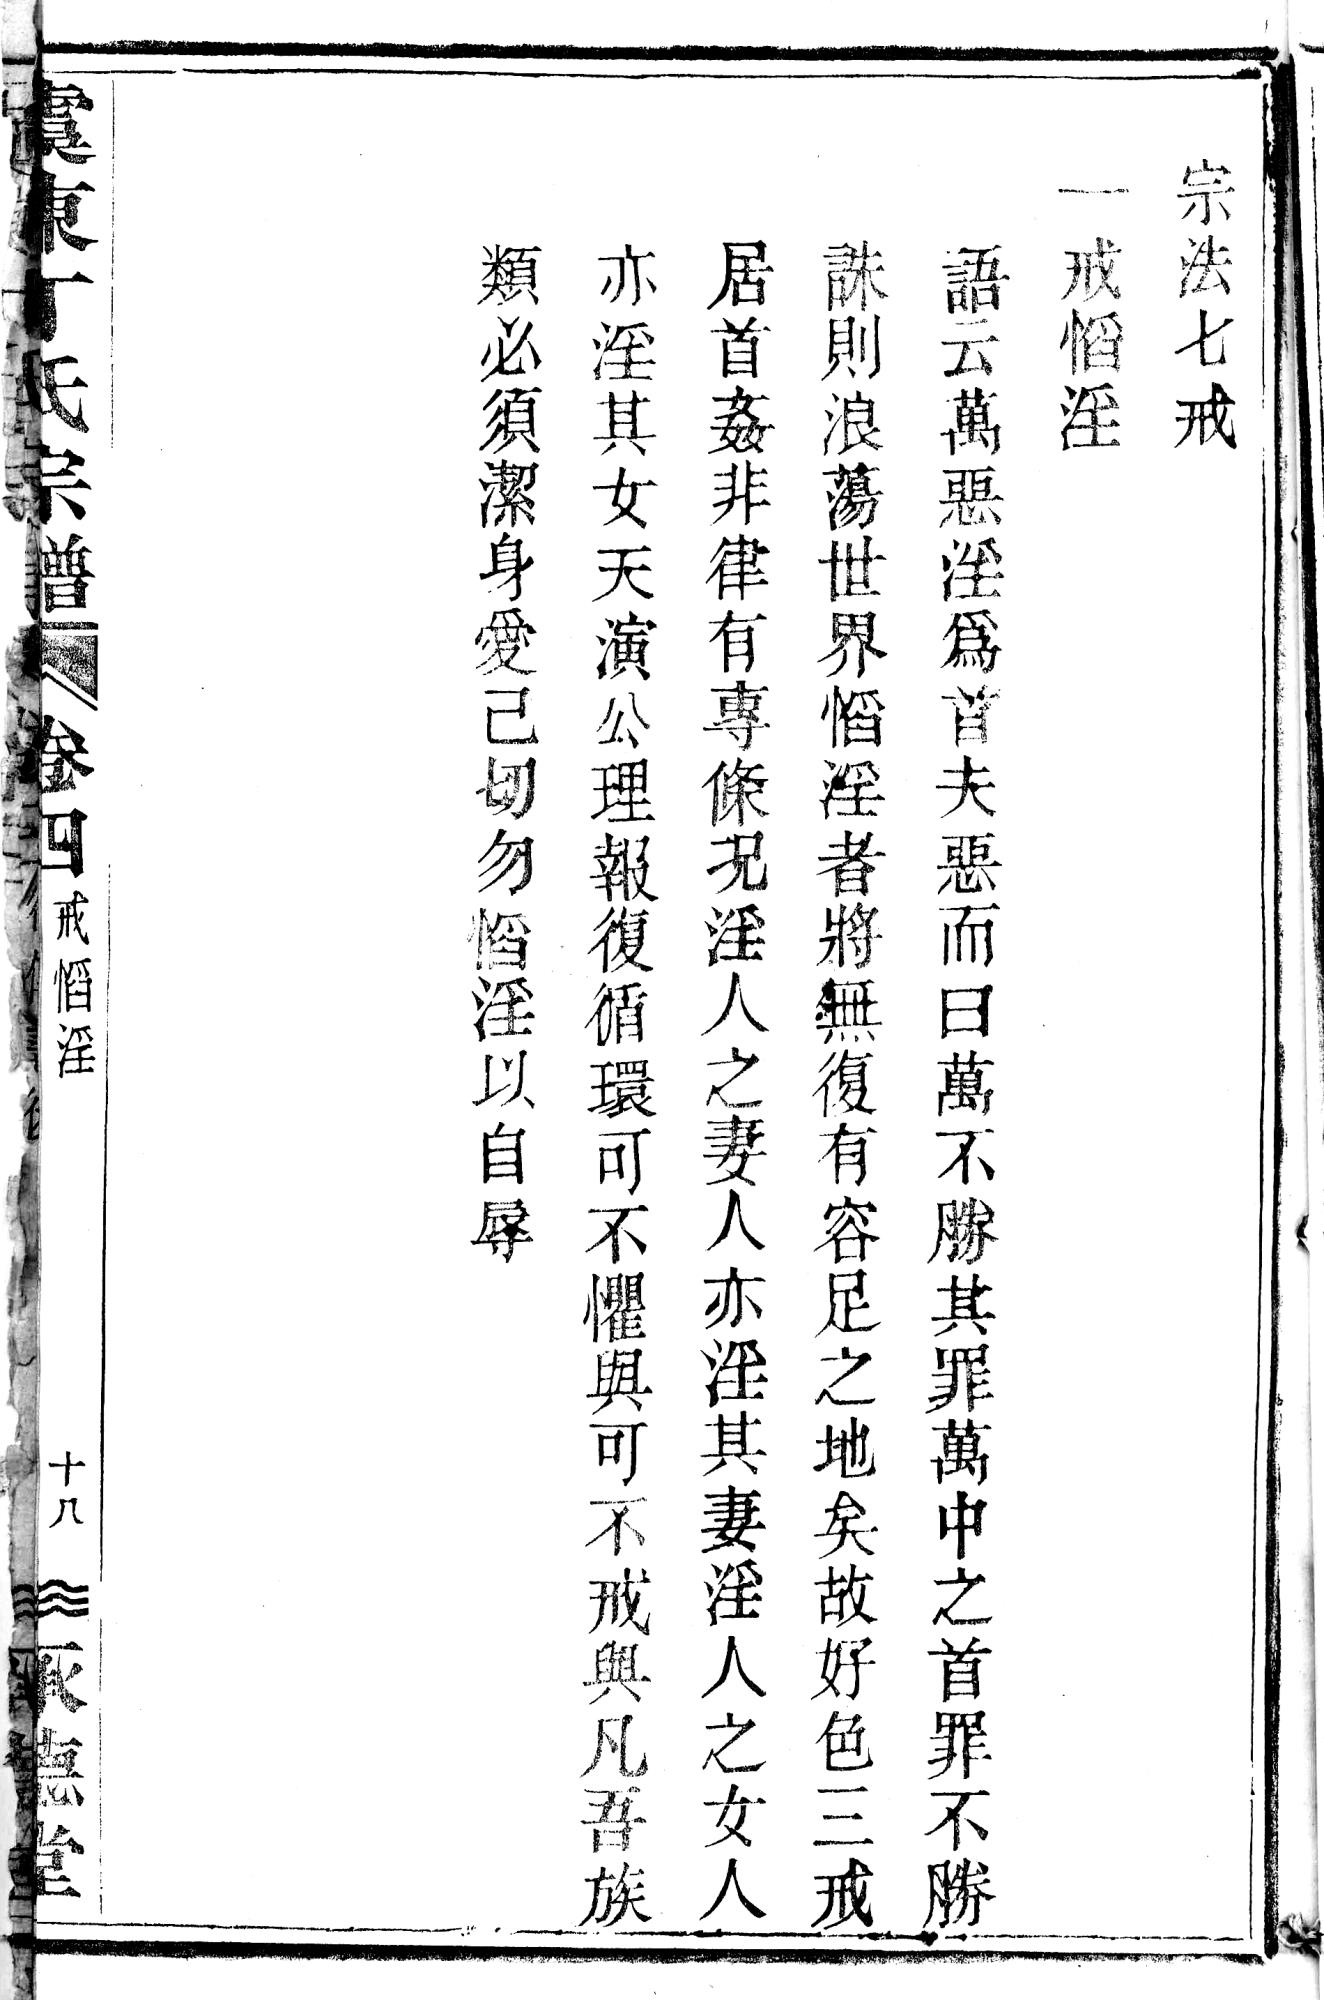 宗法七戒
一戒慆淫
語云萬惡淫爲首夫惡而曰萬不勝其罪萬中之首罪不勝
誅則浪蕩世界慆淫者將無復有容足之地矣故好色三戒
居首姦非律有專條况淫人之妻人亦淫其妻淫人之女人
亦淫其女天演公理報復循環可不懼與可不戒與凡吾族
類必須潔身愛己切勿慆淫以自辱
虞東丁氏宗譜
卷四
戒慆淫
十八
承德堂